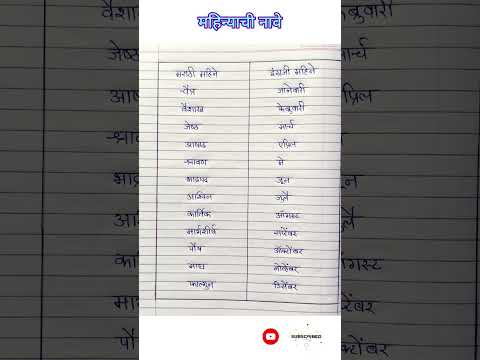 महिन्याची नावे
मराठी महिने इंग्रजी महिने
चैत्र जानेवारी
वैशाख फेब्रुवारी
जेष्ठ मार्च
आषाढ एप्रिल
श्रावण मे
भाद्रपद जून
आश्विन जुलै
कार्तिक ऑगस्ट
मार्गशीर्ष सप्टेंबर
पौष ऑक्टोंबर
माघ नोव्हेंबर
फाल्गुन डिसेंबर
SUBSCRIBED